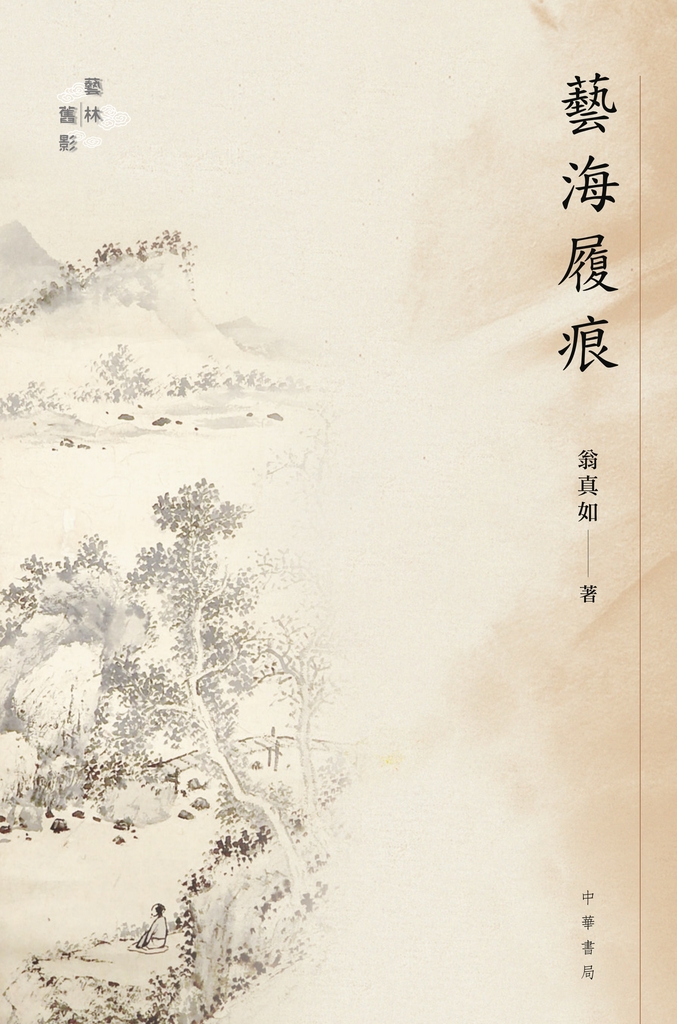 藝海履痕
翁真如——著
中華書局
藝林
舊影